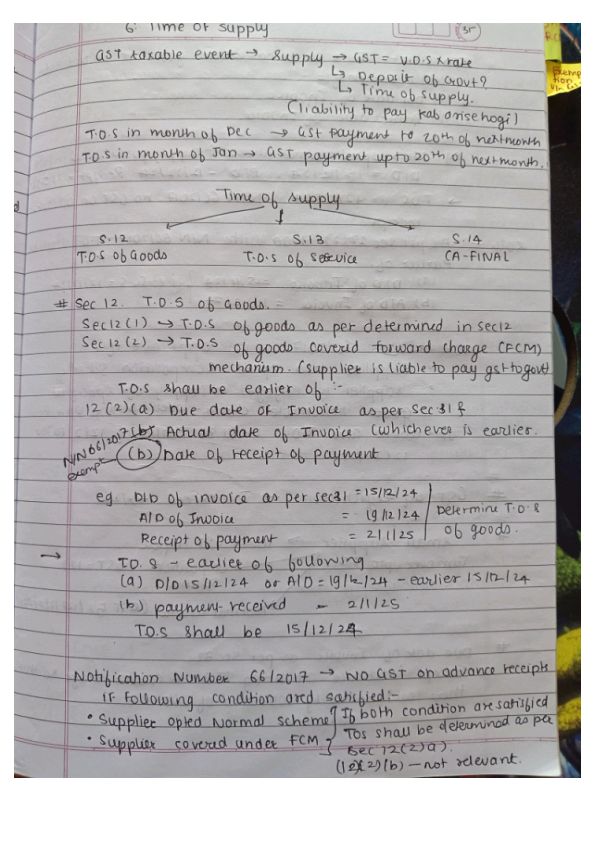 6. Time of supply
GST taxable event → Supply → GST = V.O.S x rate
↳ Deposit of Govt?
↳ Time of supply.
(liability to pay kab arise hogi)
T.O.S in month of Dec → GST payment to 20th of next month
T.O.S in month of Jan → GST payment upto 20th of next month.
Time of supply
S.12 S.13 S.14
T.O.S of Goods T.O.S of Service CA-FINAL
# Sec 12. T.O.S of Goods.
Sec 12 (1) → T.O.S of goods as per determined in sec 12
Sec 12 (2) → T.O.S of goods covered forward charge (FCM)
mechanum. (supplier is liable to pay gst to govt
T.O.S shall be earlier of :-
12 (2) (a) Due date of Invoice as per Sec.31 &
(b) Actual date of Invoice (whichever is earlier.
N/N 66/2017 exempt (b) Date of receipt of payment
eg. D/D of invoice as per sec31 = 15/12/24
A/D of Invoice = 19/12/24 Determine T.O.S
Receipt of payment = 2/1/25 of goods.
→ T.O.S - earlier of following
(a) D/D 15/12/24 or A/D = 19/12/24 - earlier 15/12/24
(b) payment received - 2/1/25
T.O.S shall be 15/12/24
Notification Number 66/2017 → NO GST on advance receipts
if following condition ared satisfied:-
• Supplier opted Normal scheme } If both condition are satisfied
• Supplier covered under FCM } TOS shall be determined as per
Sec 12(2)a).
(12(2)(b) - not relevant.